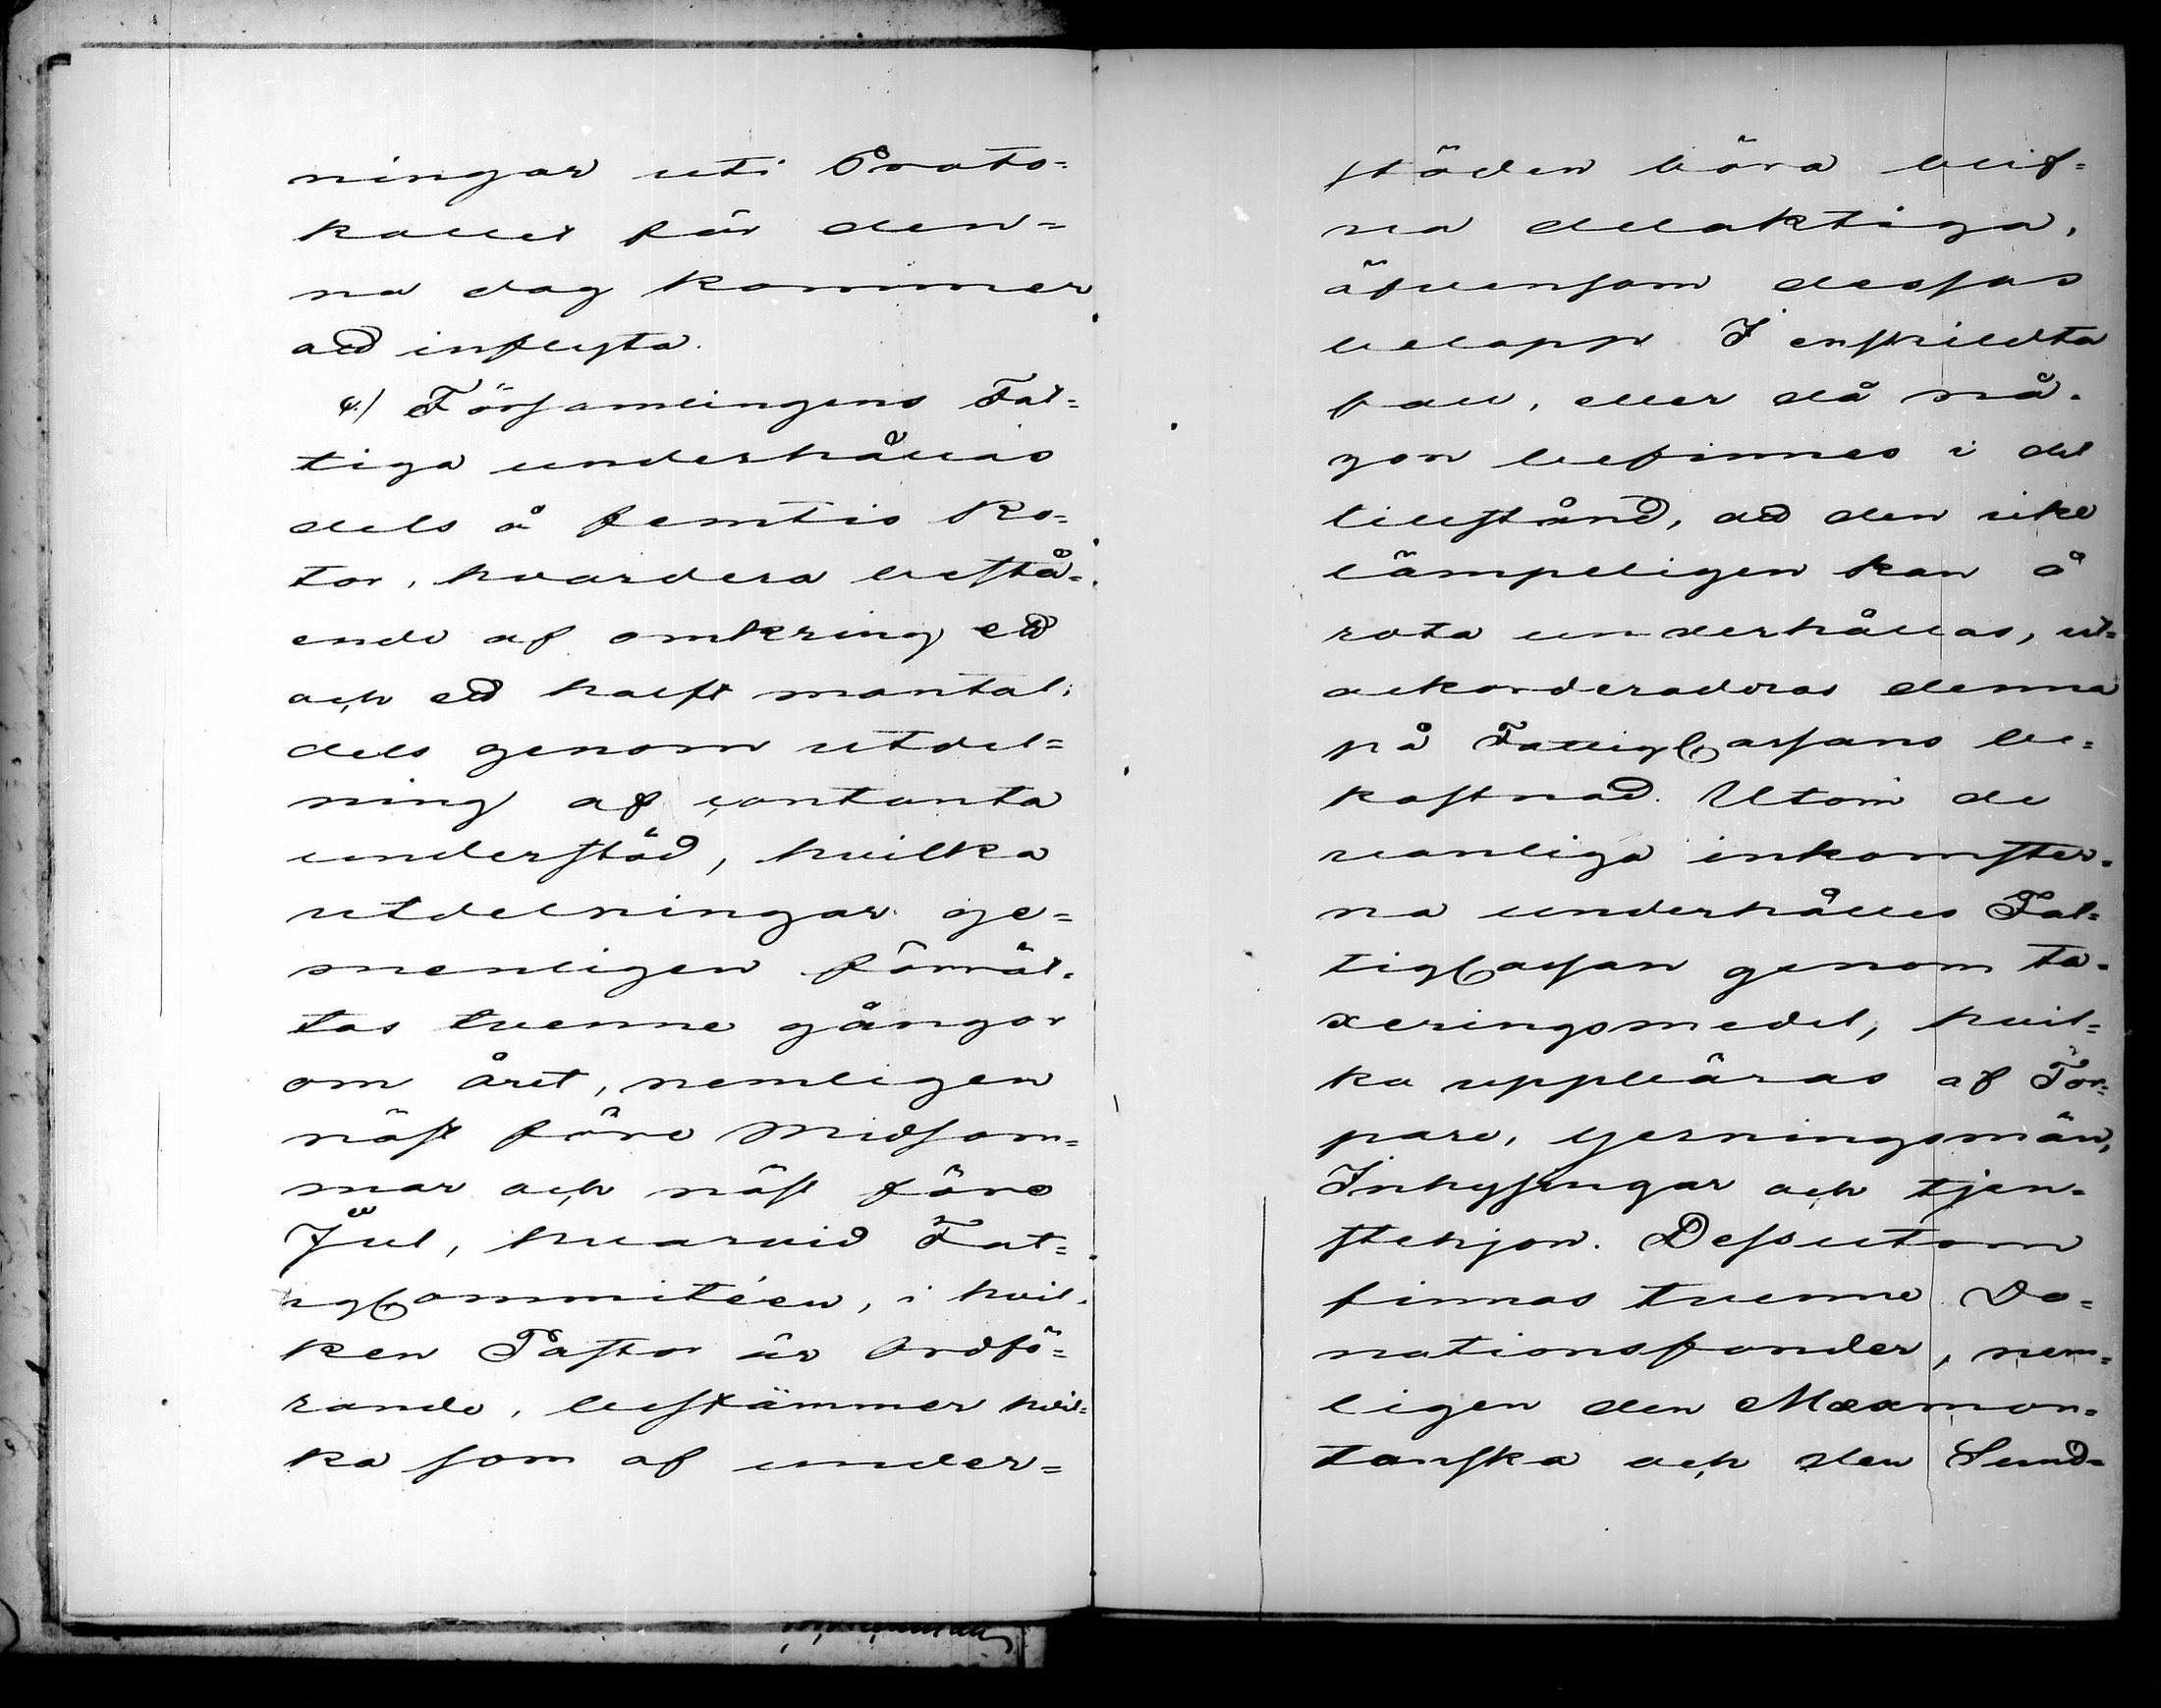 ningar uti Proto-
kollet för den-
na dag kommer
att inflyta.
4.) Församlingens Fat-
tiga underhållas
dels å femtio Ro-
tor, hvardera bestå-
ende af omkring ett
och ett halft mantal;
dels genom utdel-
ning af contanta
understöd, hvilka
utdelningar ge-
menligen förrät-
tas tvenne gångor
om året, nemligen
näst före Midsom-
mar och näst före
Jul, hvarvid Fat-
tigCommitéen, i hvil-
ken Pastor är Ordfö-
rande, bestämmer hvil-
ka som af under-
stöden böra blif-
va delaktiga,
äfvensom dessas
belopp. I enskildta
fall, eller då nå-
gon befinnes i det
tillstånd, att den icke
lämpeligen kan å
rota underhållas, ut-
ackorderas denna
på FattigCassans be-
kostnad. Utom de
vanliga inkomster-
na underhålles Fat-
tigCassan genom ta-
xeringsmedel, hvil-
ka uppbäras af Tor-
pare, Gerningsmän,
Inhysingar och tjen-
stehjon. Dessutom
finnas tvenne Do-
nationsfonder, nem-
ligen den Maxmon-
tanska och den Sund-